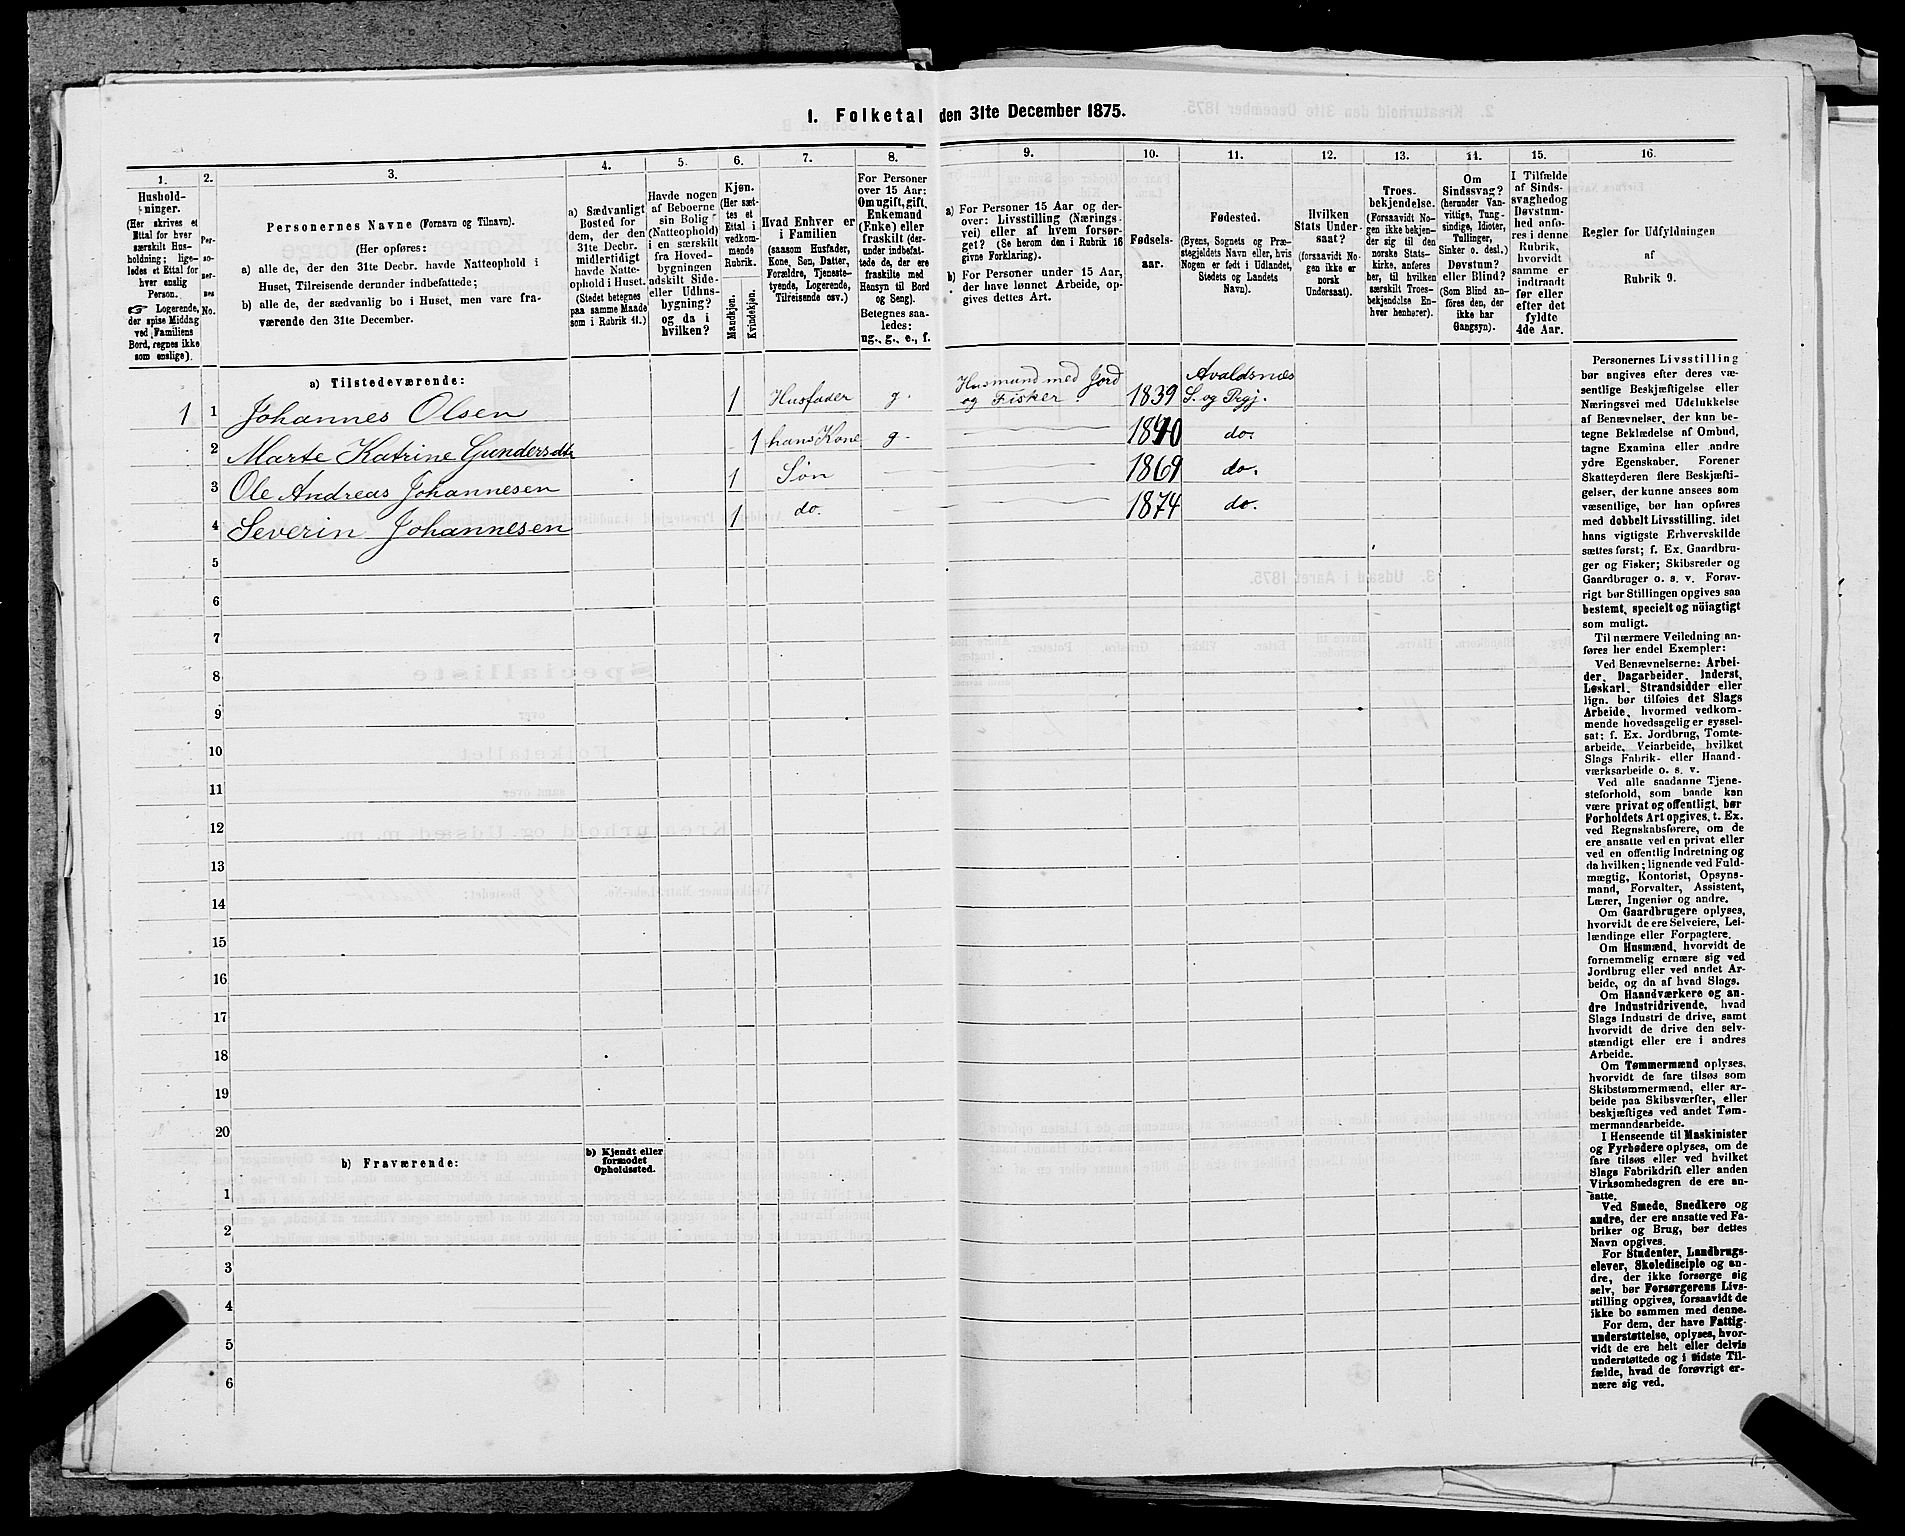 1. Folketal den 31te December 1875.
1.
Hushold-
ninger.
(Her skrives et
Ettal for hver
særskilt Hus-
holdning; lige-
ledes et Ettal for
hver enslig
Person.
☞ Logerende,
der spise Middag
ved Familiens
Bord, regnes ikke
som enslige).
2.
Per-
so-
ner-
nes
No.
3.
Personernes Navne (Fornavn og Tilnavn).
(Her opføres:
a) alle de, der den 31te Decbr. havde Natteophold i
Huset, Tilreisende derunder indbefattede;
b) alle de, der sædvanlig bo i Huset, men vare fra-
værende den 31te December.
4.
a) Sædvanligt
Bosted for
dem, der den
31te Decbr.
midlertidigt
havde Natte-
ophold i Huset.
(Stedet betegnes
paa samme Maade
som i Rubrik 11.)
5.
Havde nogen
af Beboerne
sin Bolig
(Natteophold)
i en særskilt
fra Hoved-
bygningen
adskilt Side-
eller Udhus-
bygning?
og da i
hvilken?
6.
Kjøn.
(Her sæt-
tes et
Ettal i
vedkom-
mende
Rubrik.
Mandkjøn.
Kvindekjøn.
7.
Hvad Enhver er
i Familien
(saasom Husfader,
Kone, Søn, Datter,
Forældre, Tjeneste-
tyende, Logerende,
Tilreisende osv.)
8.
For Personer
over 15 Aar:
Om ugift, gift,
Enkemand
(Enke) eller
fraskilt (der-
under indbefat-
tede de, der ere
fraskilte med
Hensyn til Bord
og Seng).
Betegnes saa-
ledes:
ug., g., e., f.
9.
a) For Personer 15 Aar og der-
over: Livsstilling (Nærings-
vei) eller af hvem forsør-
get? (Se herom den i Rubrik 16
givne Forklaring).
b) For Personer under 15 Aar,
der have lønnet Arbeide, op-
gives dettes Art.
10.
Fødsels-
aar.
11.
Fødested.
(Byens, Sognets og Præ-
stegjeldets Navn eller, hvis
Nogen er født i Udlandet,
Stedets og Landets
Navn).
12.
Hvilken
Stats Under-
saat?
(forsaavidt No-
gen ikke er
norsk
Undersaat).
13.
Troes-
bekjendelse.
(Forsaavidt No-
gen ikke bekjen-
der sig til den
norske Stats-
kirke, anføres
her, til hvilken
særskilt Troes-
bekjendelse En-
hver henhører).
14.
Om
Sindssvag?
(herunder Van-
vittige, Tung-
sindige, Idioter,
Tullinger,
Sinker o. desl.)
Døvstum?
eller Blind?
(Som Blind an-
føres den, der
ikke har
Gangsyn).
15.
I Tilfælde
af Sinds-
svaghed og
Døvstum-
hed anfø-
res i denne
Rubrik,
hvorvidt
samme er
indtraadt
før eller
efter det
fyldte
4de Aar.
16.
Regler for Udfyldningen
af
Rubrik 9.
a) Tilstedeværende:
1 1 Johannes Olsen 1 Husfader g. Husmand med Jord og Fisker. 1839 Avaldsnes S. og Prgj.
2 Marte Katrine Gundersdtr 1 hans Kone g. 1840 do.
3 Ole Andreas Johannesen 1 Søn 1869 do.
4 Severin Johannesen 1 do. 1874 do.
5
6
7
8
9
10
11
12
13
14
15
16
17
18
19
20
b) Fraværende:
b) Kjendt eller
formodet
Opholdssted.
1
2
3
4
5
6
Personernes Livsstilling
bør angives efter deres væ-
sentlige Beskjæftigelse eller
Næringsvei med Udelukkelse
af Benævnelser, der kun be-
tegne Beklædelse af Ombud,
tagne Examina eller andre
ydre Egenskaber. Forener
Skatteyderen flere Beskjæfti-
gelser, der kunne ansees som
væsentlige, bør han opføres
med dobbelt Livsstilling, idet
hans vigtigste Erhvervskilde
sættes først; f. Ex. Gaardbru-
ger og Fisker; Skibsreder og
Gaardbruger o. s. v. Forøv-
rigt bør Stillingen opgives saa
bestemt, specielt og nöiagtigt
som muligt.
Til nærmere Veiledning an-
føres her endel Exempler:
Ved Benævnelserne: Arbei-
der, Dagarbeider, Inderst,
Løskarl, Strandsidder eller
lign. bør tilføies det Slags
Arbeide, hvormed vedkom-
mende hovedsagelig er syssel-
sat; f. Ex. Jordbrug, Tomte-
arbeide, Veiarbeide, hvilket
Slags Fabrik- eller Haand-
værksarbeide o. s. v.
Ved alle saadanne Tjene-
steforhold, som baade kan
være privat og offentligt, bør
Forholdets Art opgives, t. Ex.
ved Regnskabsførere, om de
ere ansatte ved en privat eller
ved en offentlig Indretning og
da hvilken; lignende ved Fuld-
mægtig, Kontorist, Opsyns-
mand, Forvalter, Assistent,
Lærer, Ingeniør og andre.
Om Gaardbrugere oplyses,
hvorvidt de ere Selveiere, Lei-
lændinge eller Forpagtere.
Om Husmænd, hvorvidt de
fornemmelig ernære sig ved
Jordbrug eller ved andet Ar-
beide, og da af hvad Slags.
Om Haandværkere og an-
dre Industridrivende, hvad
Slags Industri de drive, samt
hvorvidt de drive den selv-
stændigt eller ere i andres
Arbeide.
Om Tømmermænd oplyses,
hvorvidt de fare tilsøs som
Skibstømmermænd, eller ar-
beide paa Skibsværfter, eller
beskjæftiges ved andet Tøm-
mermandsarbeide.
I Henseende til Maskinister
og Fyrbødere oplyses, om de
fare tilsøs eller ved hvilket
Slags Fabrikdrift eller anden
Virksomhedsgren de ere an-
satte.
Ved Smede, Snedkere og
andre, der ere ansatte ved Fa-
briker og Brug, bør dettes
Navn opgives.
For Studenter, Landbrugs-
elever, Skoledisciple og an-
dre, der ikke forsørge sig
selv, bør Forsørgerens Livs-
stilling opgives, forsaavidt de
ikke bo sammen med denne.
For dem, der have Fattig-
understøttelse, oplyses, hvor-
vidt de ere helt eller delvis
understøttede og i sidste Til-
fælde, hvad de forøvrigt er-
nære sig ved.